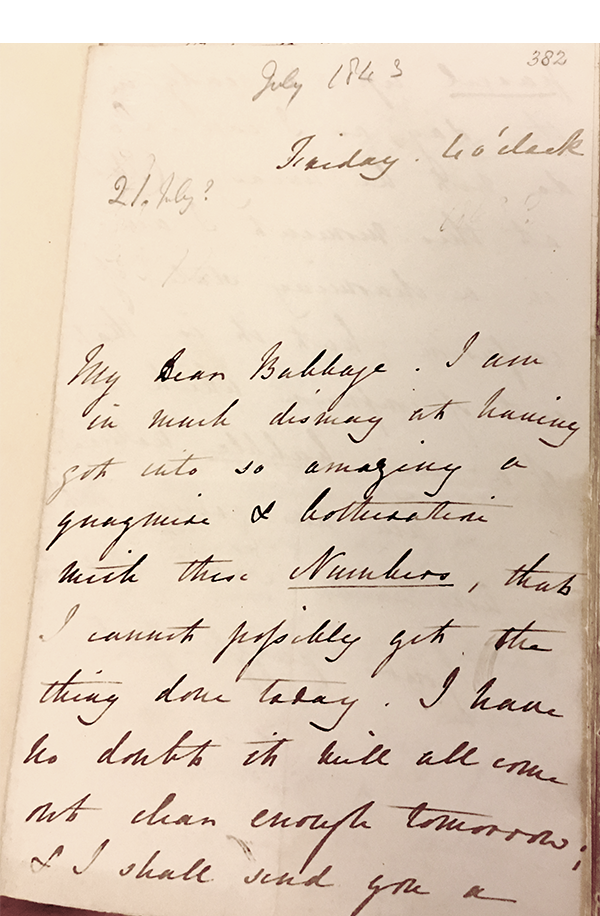 382
July 1843
Friday. 4 o'clock
21. July?
My Dear Babbage. I am
in much dismay at having
got into so amazing a
quagmire & botheration
with these Numbers, that
I cannot possibly get the
thing done today. I have
no doubt it will all come
out clear enough tomorrow;
& I shall send you a